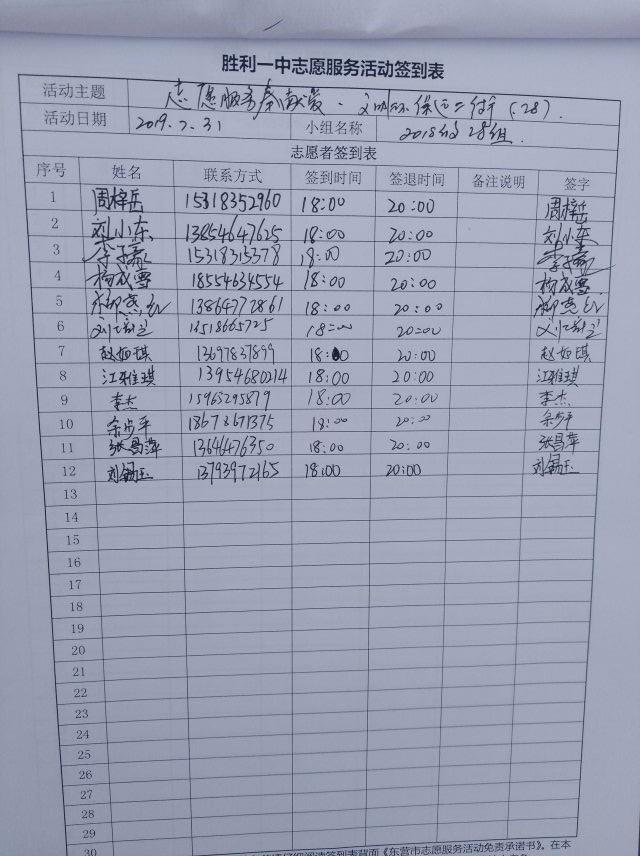 胜利一中志愿服务活动签到表
活动主题 志愿服务奉献爱
活动日期 2019.7.31 小组名称 2018级28组
志愿者签到表
序号 姓名 联系方式 签到时间 签退时间 备注说明 签字
1 周梓岳 15318352960 18:00 20:00 周梓岳
2 刘小东 13854647625 18:00 20:00 刘小东
3 15318315378 18:00 20:00
4 杨成雪 18554634554 18:00 20:00 杨成雪
5 13864772861 18:00 20:00
6 13518665725 18:00 20:00
7 赵如琪 13697837899 18:00 20:00 赵如琪
8 江雅琪 13954680214 18:00 20:00 江雅琪
9 李杰 15965295879 18:00 20:00 李杰
10 余步平 18673671375 18:00 20:00 余步平
11 张昌萍 13646476350 18:00 20:00 张昌萍
12 刘锡玉 13793972165 18:00 20:00 刘锡玉
13
14
15
16
17
18
19
20
21
22
23
24
25
26
27
28
29
30
签到表背面《东营市志愿服务活动免责承诺书》。在本